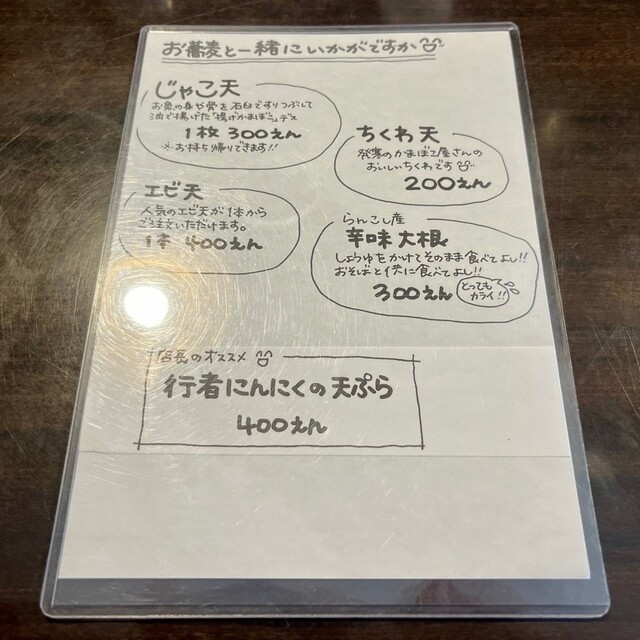 お蕎麦と一緒にいかがですか
じゃこ天
お魚の身や骨を石臼ですりつぶして
油で揚げた「揚げかまぼこ」デス
1枚 300えん
※お持ち帰りできます!!
ちくわ天
発寒のかまぼこ屋さんの
おいしいちくわです
200えん
エビ天
人気のエビ天が1本から
ご注文いただけます。
1本 400えん
らんこし産
辛味大根
しょうゆをかけてそのまま食べてよし!!
おそばと一供に食べてよし!!
300えん
とっても
カライ!!
店長のオススメ
行者にんにくの天ぷら
400えん